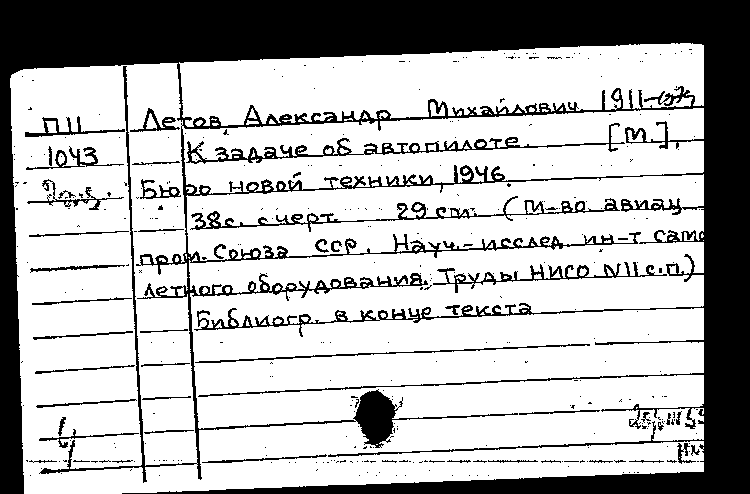 П11 Летов, Александр Михайлович 1911-
1043 К задаче об автопилоте. [М.],
Бюро новой техники, 1946.
38с. с черт. 29 см. (М-во авиац
пром. Союза ССР. Науч.-исслед ин-т само
летного оборудования. Труды НИСО N11 с.п.)
Библиогр. в конце текста
4